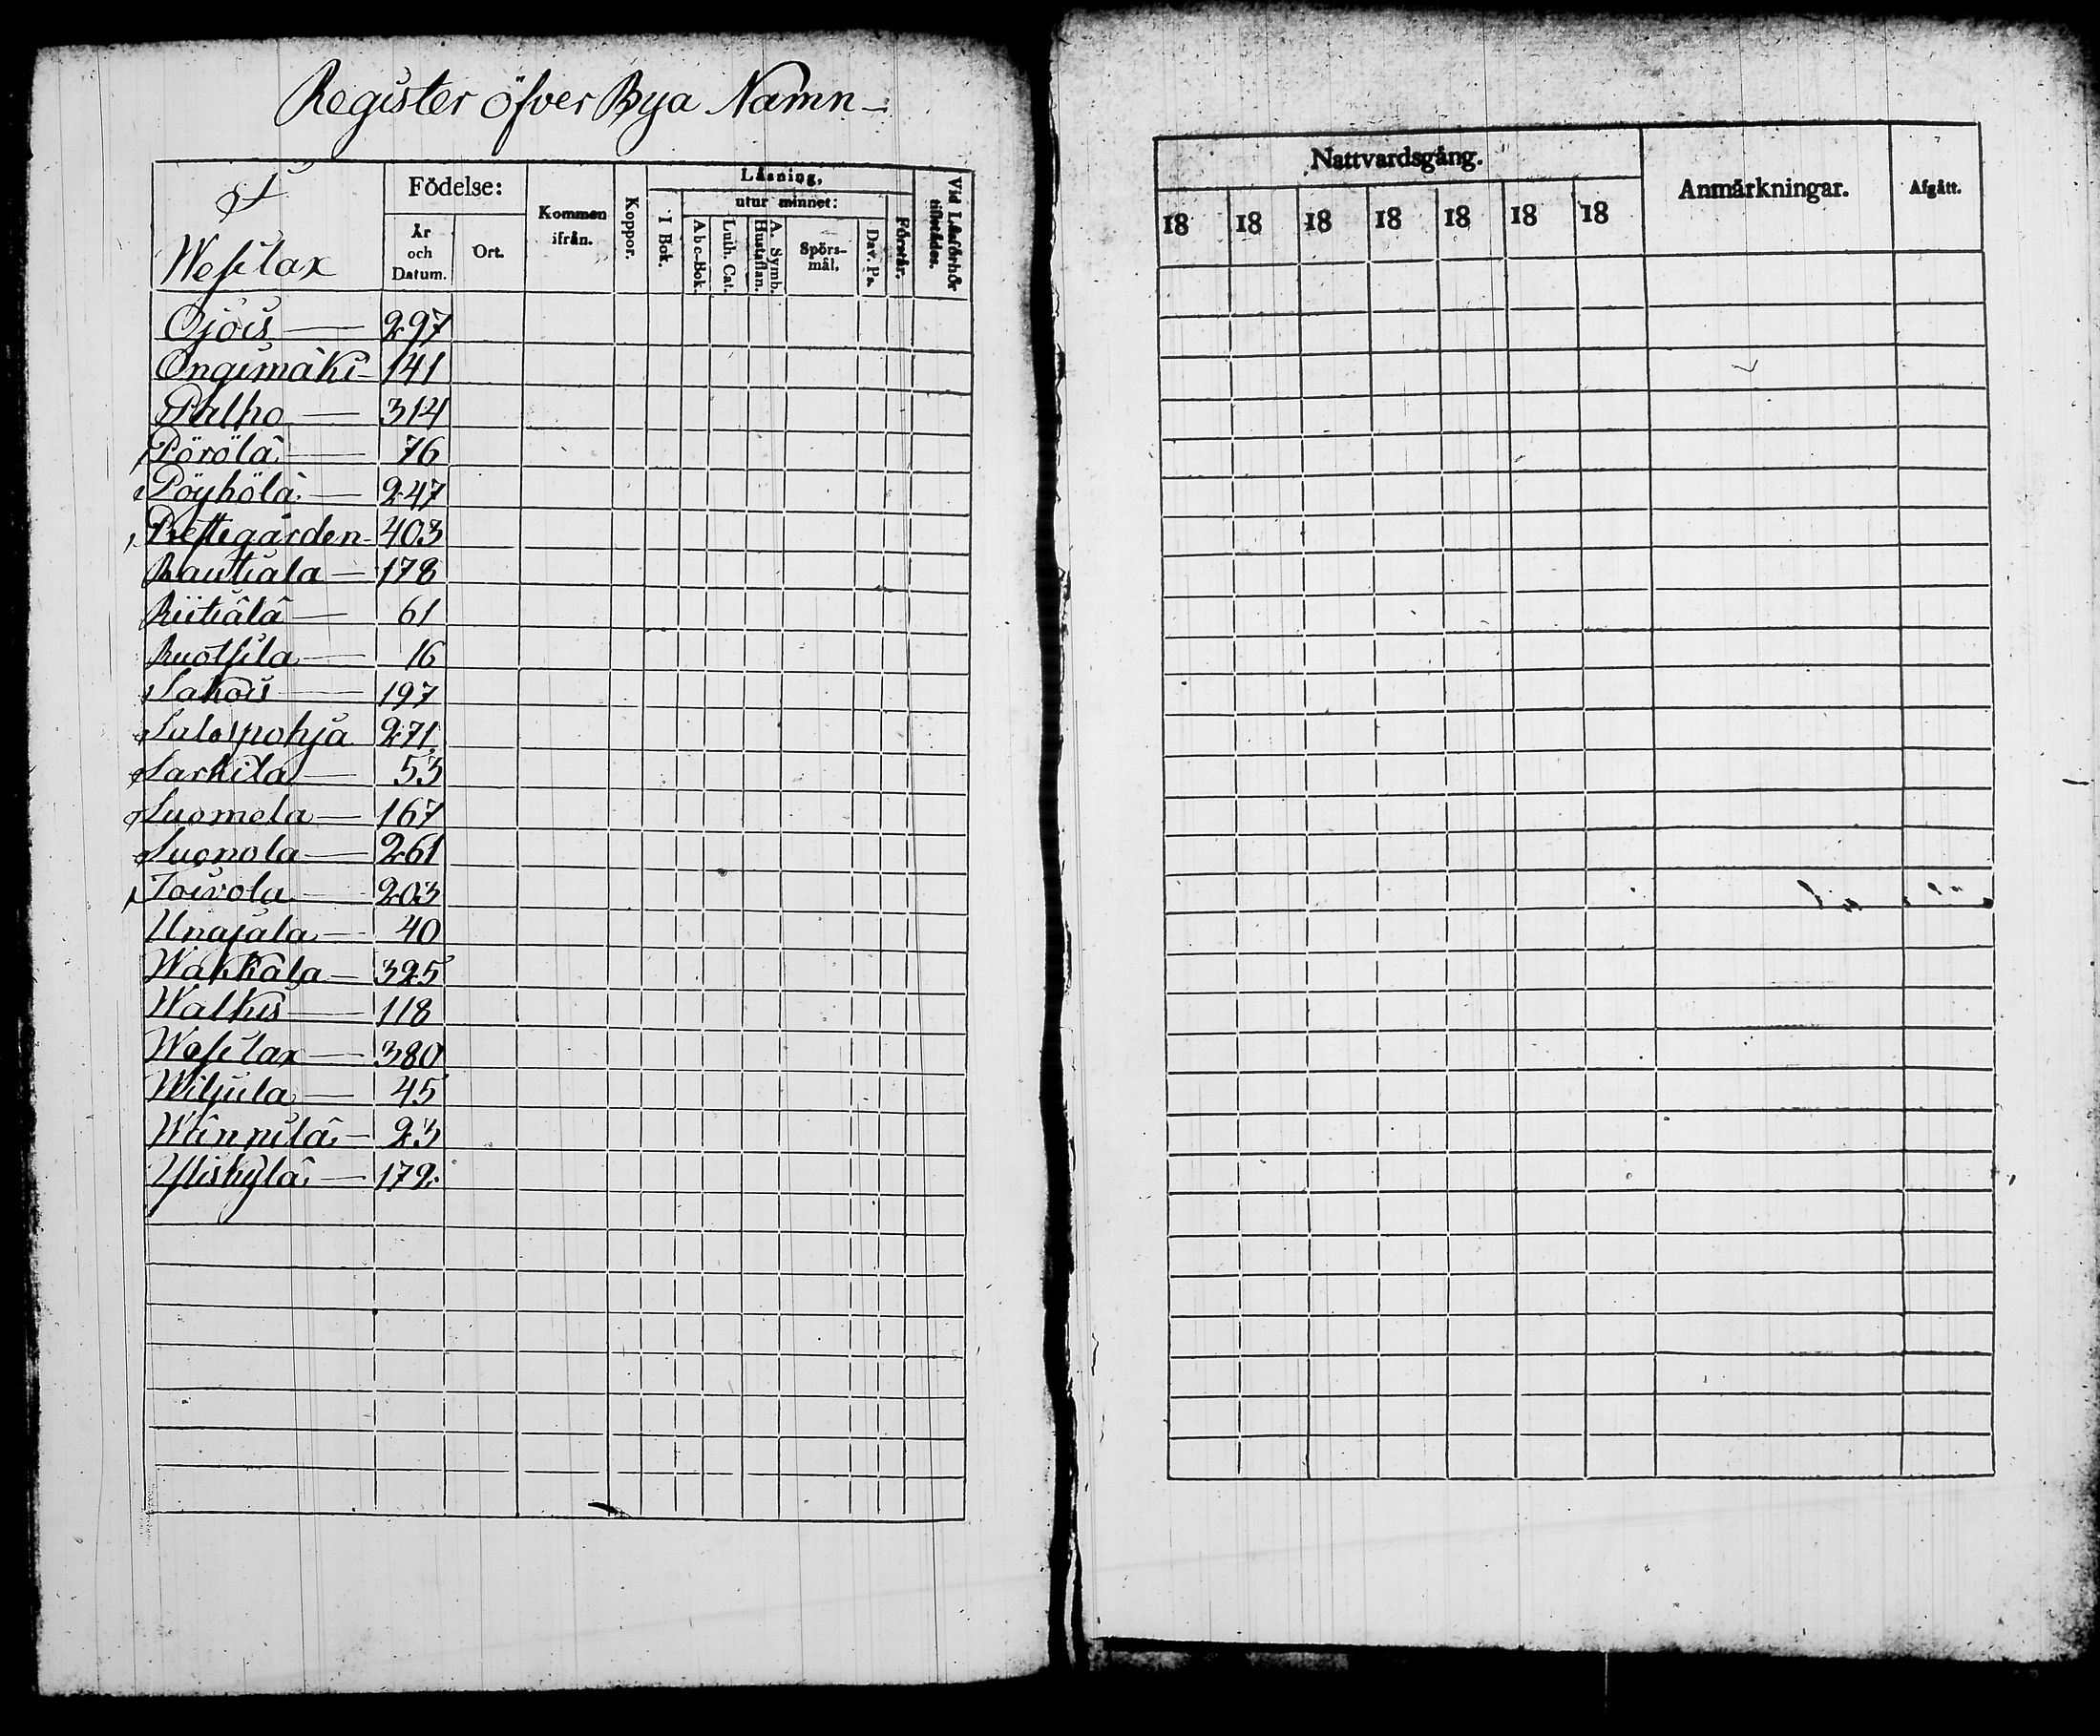 Register öfver Bya Namn
I
Wesilax
Födelse:
År och Datum.
Ort.
Kommen ifrån.
Koppor.
Läsning,
I Bok.
utur minnet:
Abc-Bok.
Luth. Cat.
A. Symb. Hustaflan.
Spörs-mål.
Dav. Ps.
Förstår.
Vid Läsförhör tillstädes.
Nattvardsgång.
18 18 18 18 18 18 18
Anmärkningar.
Afgått.
Ojois — 297
Ongimäki — 141
Palho — 314
Pörölä — 76
Pöyhölä — 247
Prestegården — 403
Rautiala — 178
Riitiälä — 61
Ruotsila — 16
Sakois — 197
Salospohja 271
Sarkila — 53
Suomela — 167
Suonola — 261
Toivola — 203
Unajala — 40
Wakkala — 325
Walkis — 118
Wesilax — 380
Wiljula — 45
Wännilä — 23
Yliskylä — 179